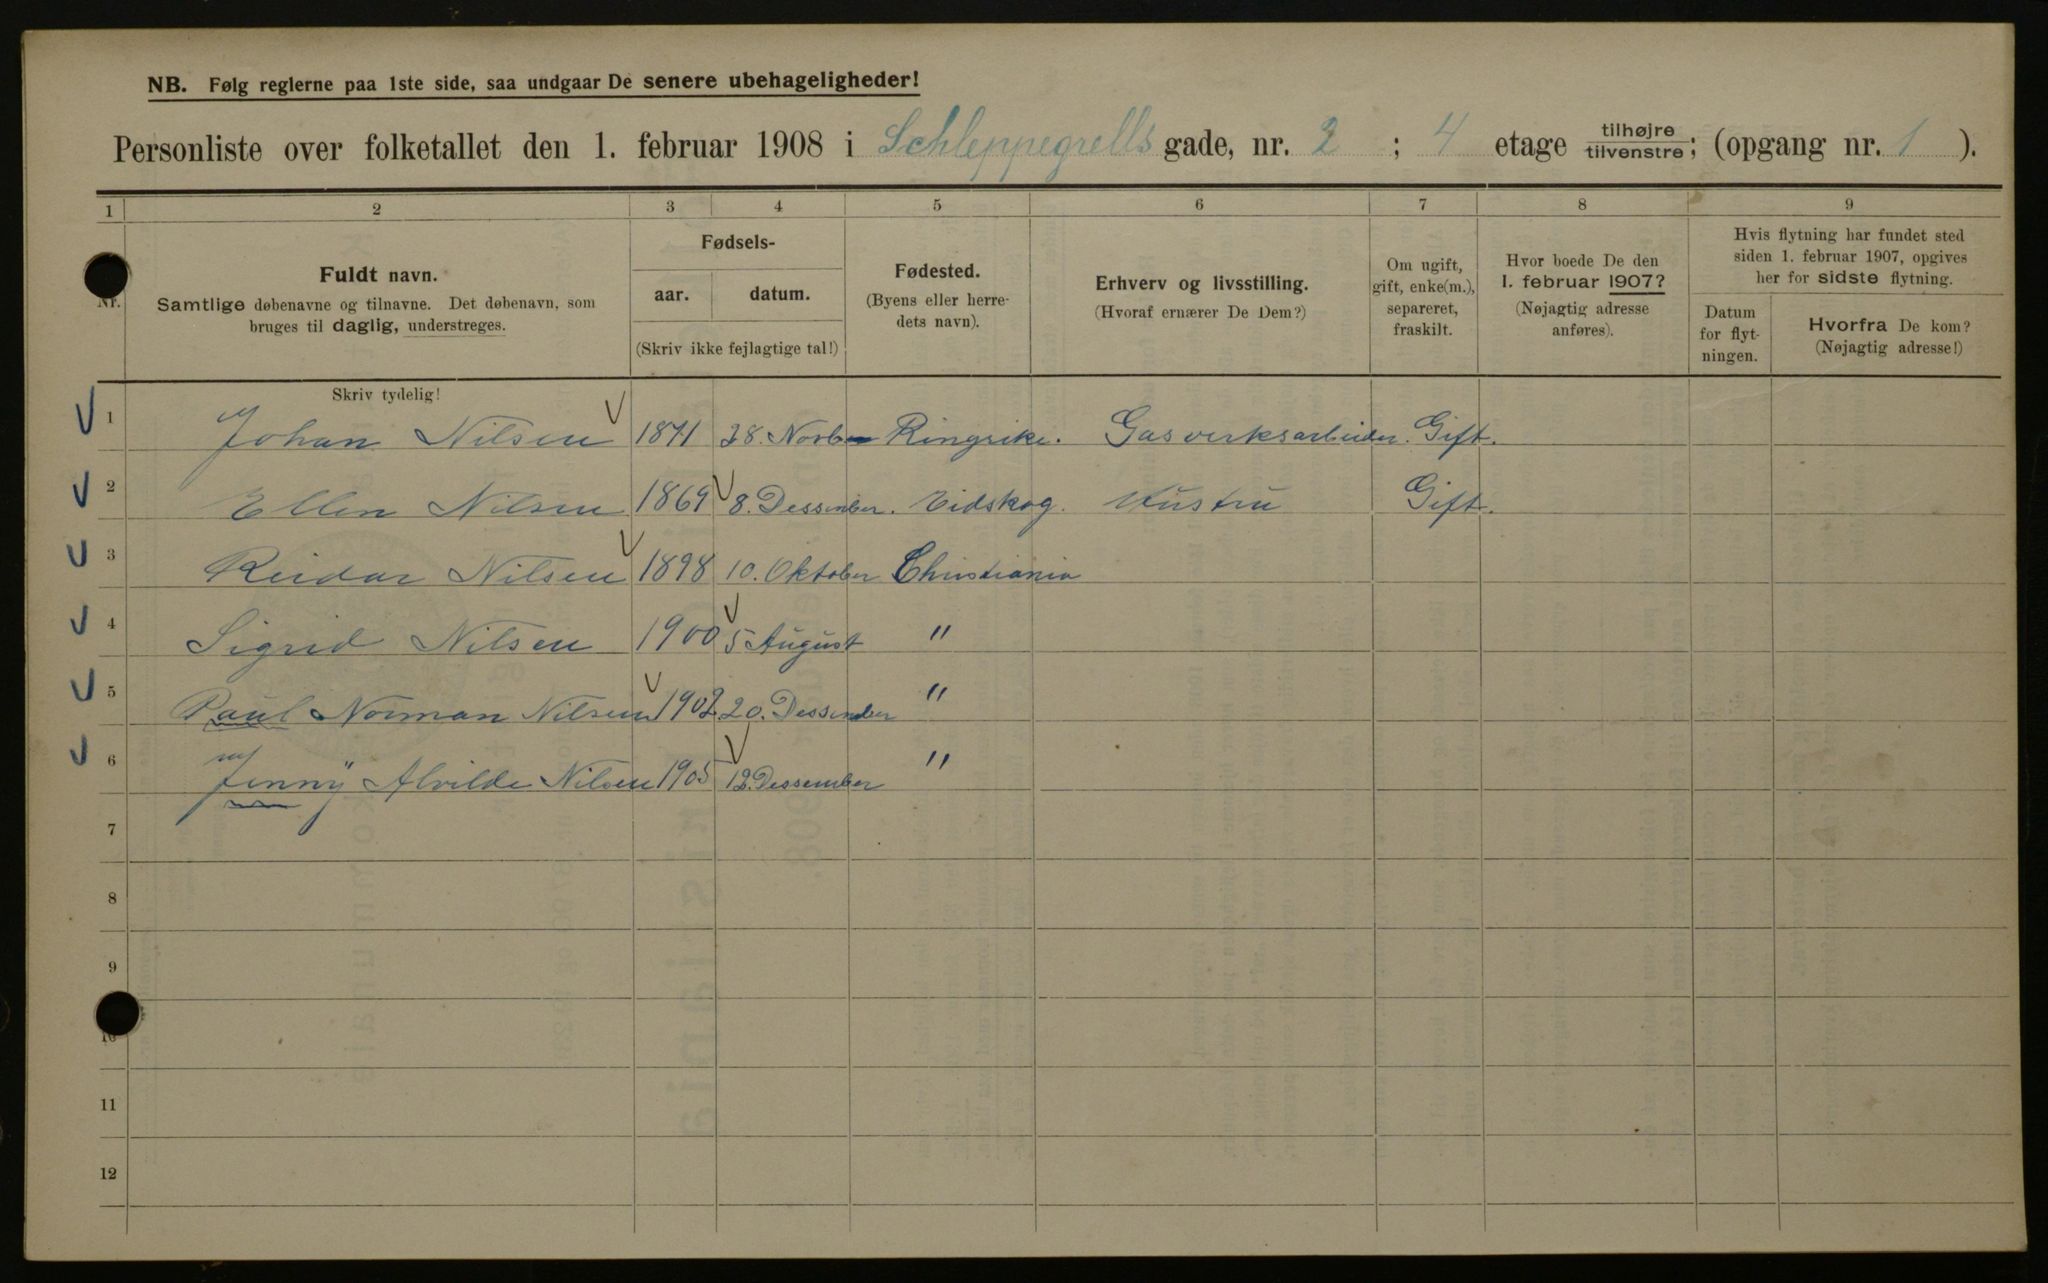 NB. Følg reglerne paa 1ste side, saa undgaar De senere ubehageligheder!
Personliste over folketallet den 1. februar 1908 i Schleppegrells gade, nr. 2 ; 4 etage tilhøjre tilvenstre; (opgang nr. 1 ).
1 2 3 4 5 6 7 8 9
Nr.
Fuldt navn.
Samtlige døbenavne og tilnavne. Det døbenavn, som
bruges til daglig, understreges.
Fødsels-
aar. datum.
(Skriv ikke fejlagtige tal!)
Fødested.
(Byens eller herre-
dets navn).
Erhverv og livsstilling.
(Hvoraf ernærer De Dem?)
Om ugift,
gift, enke(m.),
separeret,
fraskilt.
Hvor boede De den
1. februar 1907?
(Nøjagtig adresse
anføres).
Hvis flytning har fundet sted
siden 1. februar 1907, opgives
her for sidste flytning.
Datum
for flyt-
ningen.
Hvorfra De kom?
(Nøjagtig adresse!)
Skriv tydelig!
1 Johan Nilsen 1871 28. Novb Ringrike. Gasverksarbeider. Gift.
2 Ellen Nilsen 1869 8. Dessember. Eidskog. Hustru Gift.
3 Reidar Nilsen 1898 10. Oktober Christiania
4 Sigrid Nilsen 1900 5 August "
5 Paul Norman Nilsen 1902. 20. Dessember "
6 Jenny Alvilde Nilsen 1905 12. Dessember "
7
8
9
10
11
12